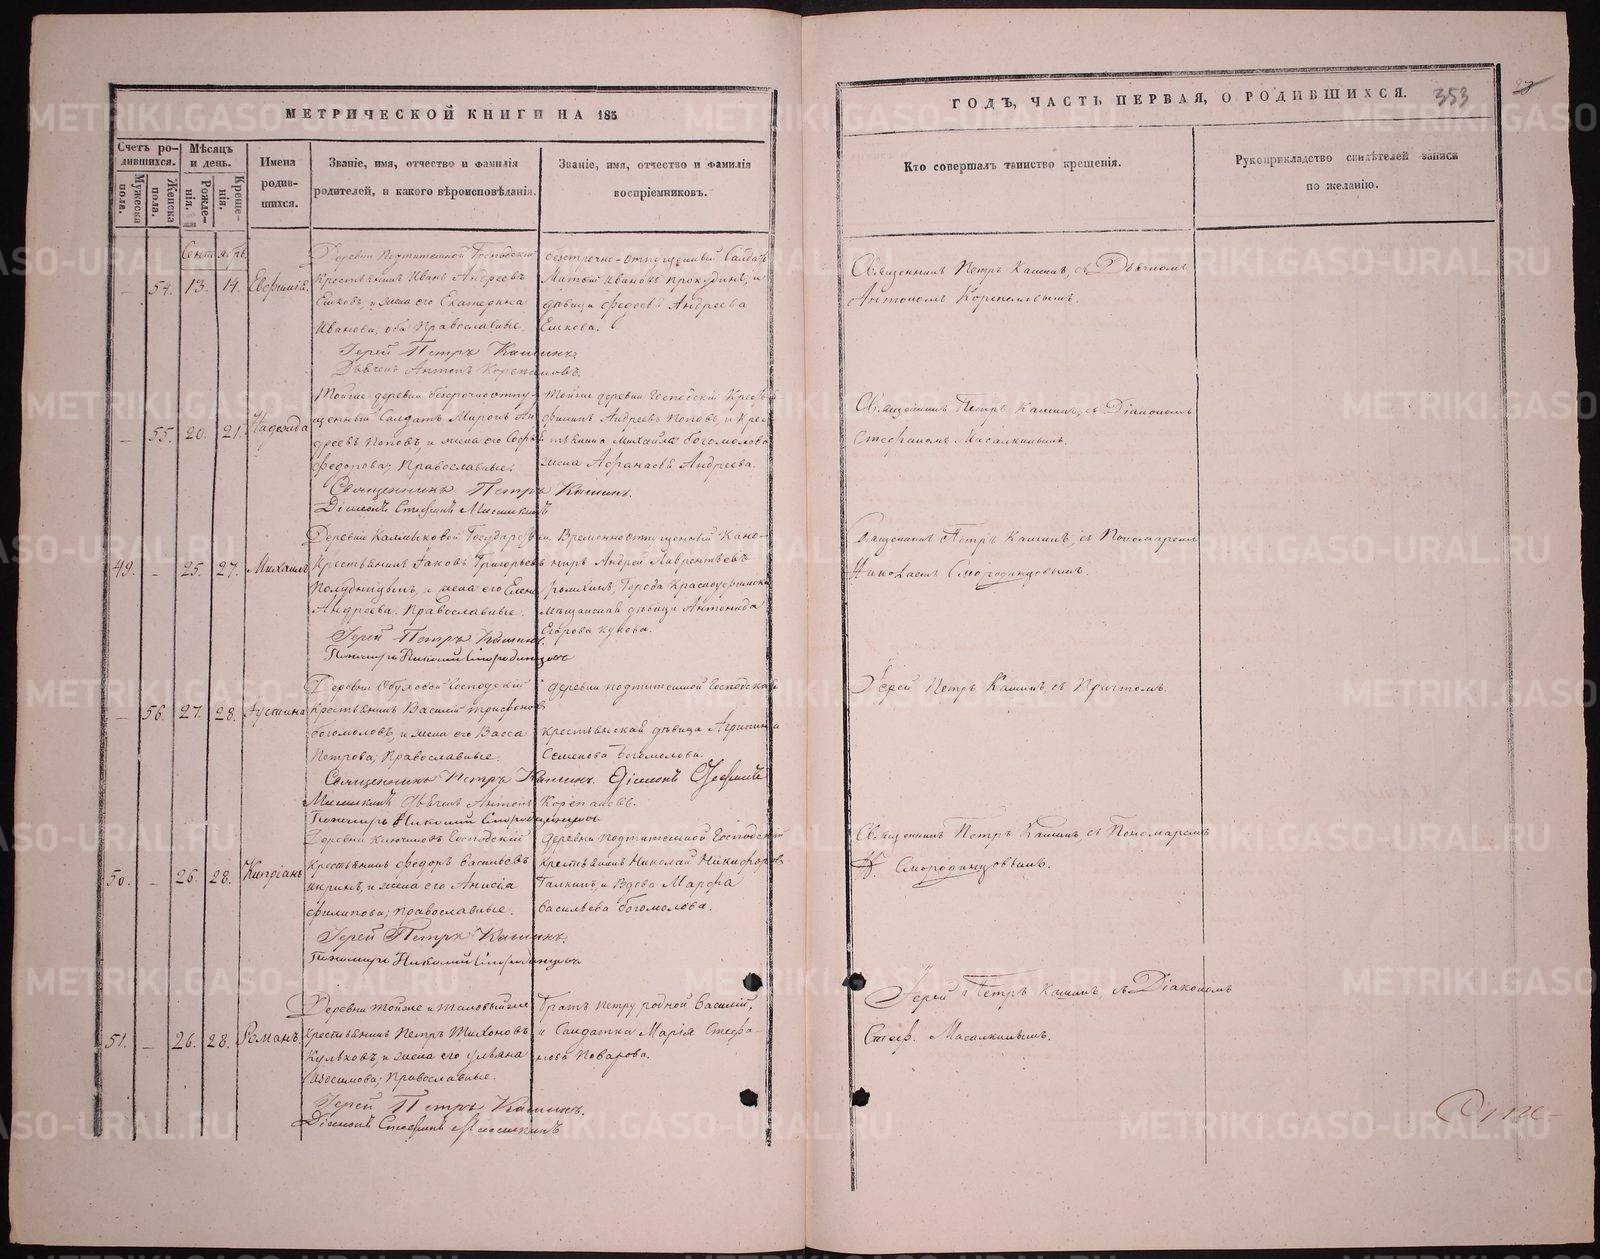 МЕТРИЧЕСКОЙ КНИГИ НА 185
Счетъ ро-
дившихся.
Мужеска пола.
Женска пола.
Мѣсяцъ
и день.
Рожде-
нія.
Креще-
нія.
Имена
родив-
шихся.
Званіе, имя, отчество и фамилія
родителей, и какого вѣроисповѣданія.
Званіе, имя, отчество и фамилія
воспріемниковъ.
Сентябрь
54. 13. 14. Евфимія
Деревни Подтитешной Господскій
Крестьянинъ Иванъ Андреевъ
Ешковъ, и жена его Екатерина
Иванова, оба Православные.
безсрочно-отпущенный Салдатъ
Матвѣй Ивановъ Прокудинъ, и
дѣвица Федосья Андреева
Ешкова.
Іерей Петръ Кашинъ.
Дьячекъ Антонъ Корепановъ.
55. 20. 21. Надежда
Тойже деревни безсрочноотпу-
щенный Салдатъ Миронъ Ан-
дреевъ Поповъ, и жена его Софья
Федорова, Православные.
Тойже деревни Господскій Крест
Андреевъ Поповъ, и Крес-
тьянина Михайла Богомолова
жена Афанасья Андреева.
Священникъ Петръ Кашинъ.
Діаконъ Стефанъ Масалкинъ
49. - 25. 27. Михаилъ
Деревни Калмыковой Государствен.
Крестьянинъ Іаковъ Григорьевъ
Полудницынъ, и жена его Елена
Андреева. Православные.
Временноотпущенный Кано-
ниръ Андрей Лаврентьевъ
Города Красноуфимска
мѣщанская дѣвица Антонида
Егорова Кукова.
Іерей Петръ Кашинъ.
Пономарь Николай Смородинцовъ
56. 27. 28. Іустина
Деревни Обуховой Господскій
Крестьянинъ Василій Трифоновъ
Богомоловъ, и жена его Васса
Петрова, Православные.
деревни Подтитешной Господская
крестьянская дѣвица Агрипина
Семенова Богомолова.
Священникъ Петръ Кашинъ. Діаконъ Стефанъ
Масалкинъ Дьячекъ Антонъ Корепановъ.
Пономарь Николай Смородинцовъ.
50. - 26. 28. Кипріанъ
Деревни Ключиковъ Господскій
Крестьянинъ Федоръ Васильевъ
и жена его Анисія
Филипова, Православные.
деревни Подтитешной Господскій
Крестьянинъ Николай Никифоровъ
Галкинъ, и Вдова Марфа
Васильева Богомолова.
Іерей Петръ Кашинъ.
Пономарь Николай Смородинцовъ
51. - 26. 28. Романъ.
Деревни тойже
Крестьянинъ Петръ Тихоновъ
Кульковъ, и жена его Ульяна
Изосимова, Православные.
братъ Петру родной Василій,
и Салдатка Марія Стефа-
нова Поварова.
Іерей Петръ Кашинъ.
Діаконъ Стефанъ Масалкинъ
ГОДЪ, ЧАСТЬ ПЕРВАЯ, О РОДИВШИХСЯ.
353
Кто совершалъ таинство крещенія.
Рукоприкладство свидѣтелей записи
по желанію.
Священникъ Петръ Кашинъ, съ Дьячкомъ
Антономъ Корепановымъ.
Священникъ Петръ Кашинъ, съ Діакономъ
Стефаномъ Масалкинымъ.
Священникъ Петръ Кашинъ, съ Пономаремъ
Николаемъ Смородинцовымъ.
Іерей Петръ Кашинъ, съ Причтомъ.
Священникъ Петръ Кашинъ съ Пономаремъ
Н. Смородинцовымъ.
Іерей Петръ Кашинъ, съ Діакономъ
Стеф. Масалкинымъ.
METRIKI.GASO-URAL.RU